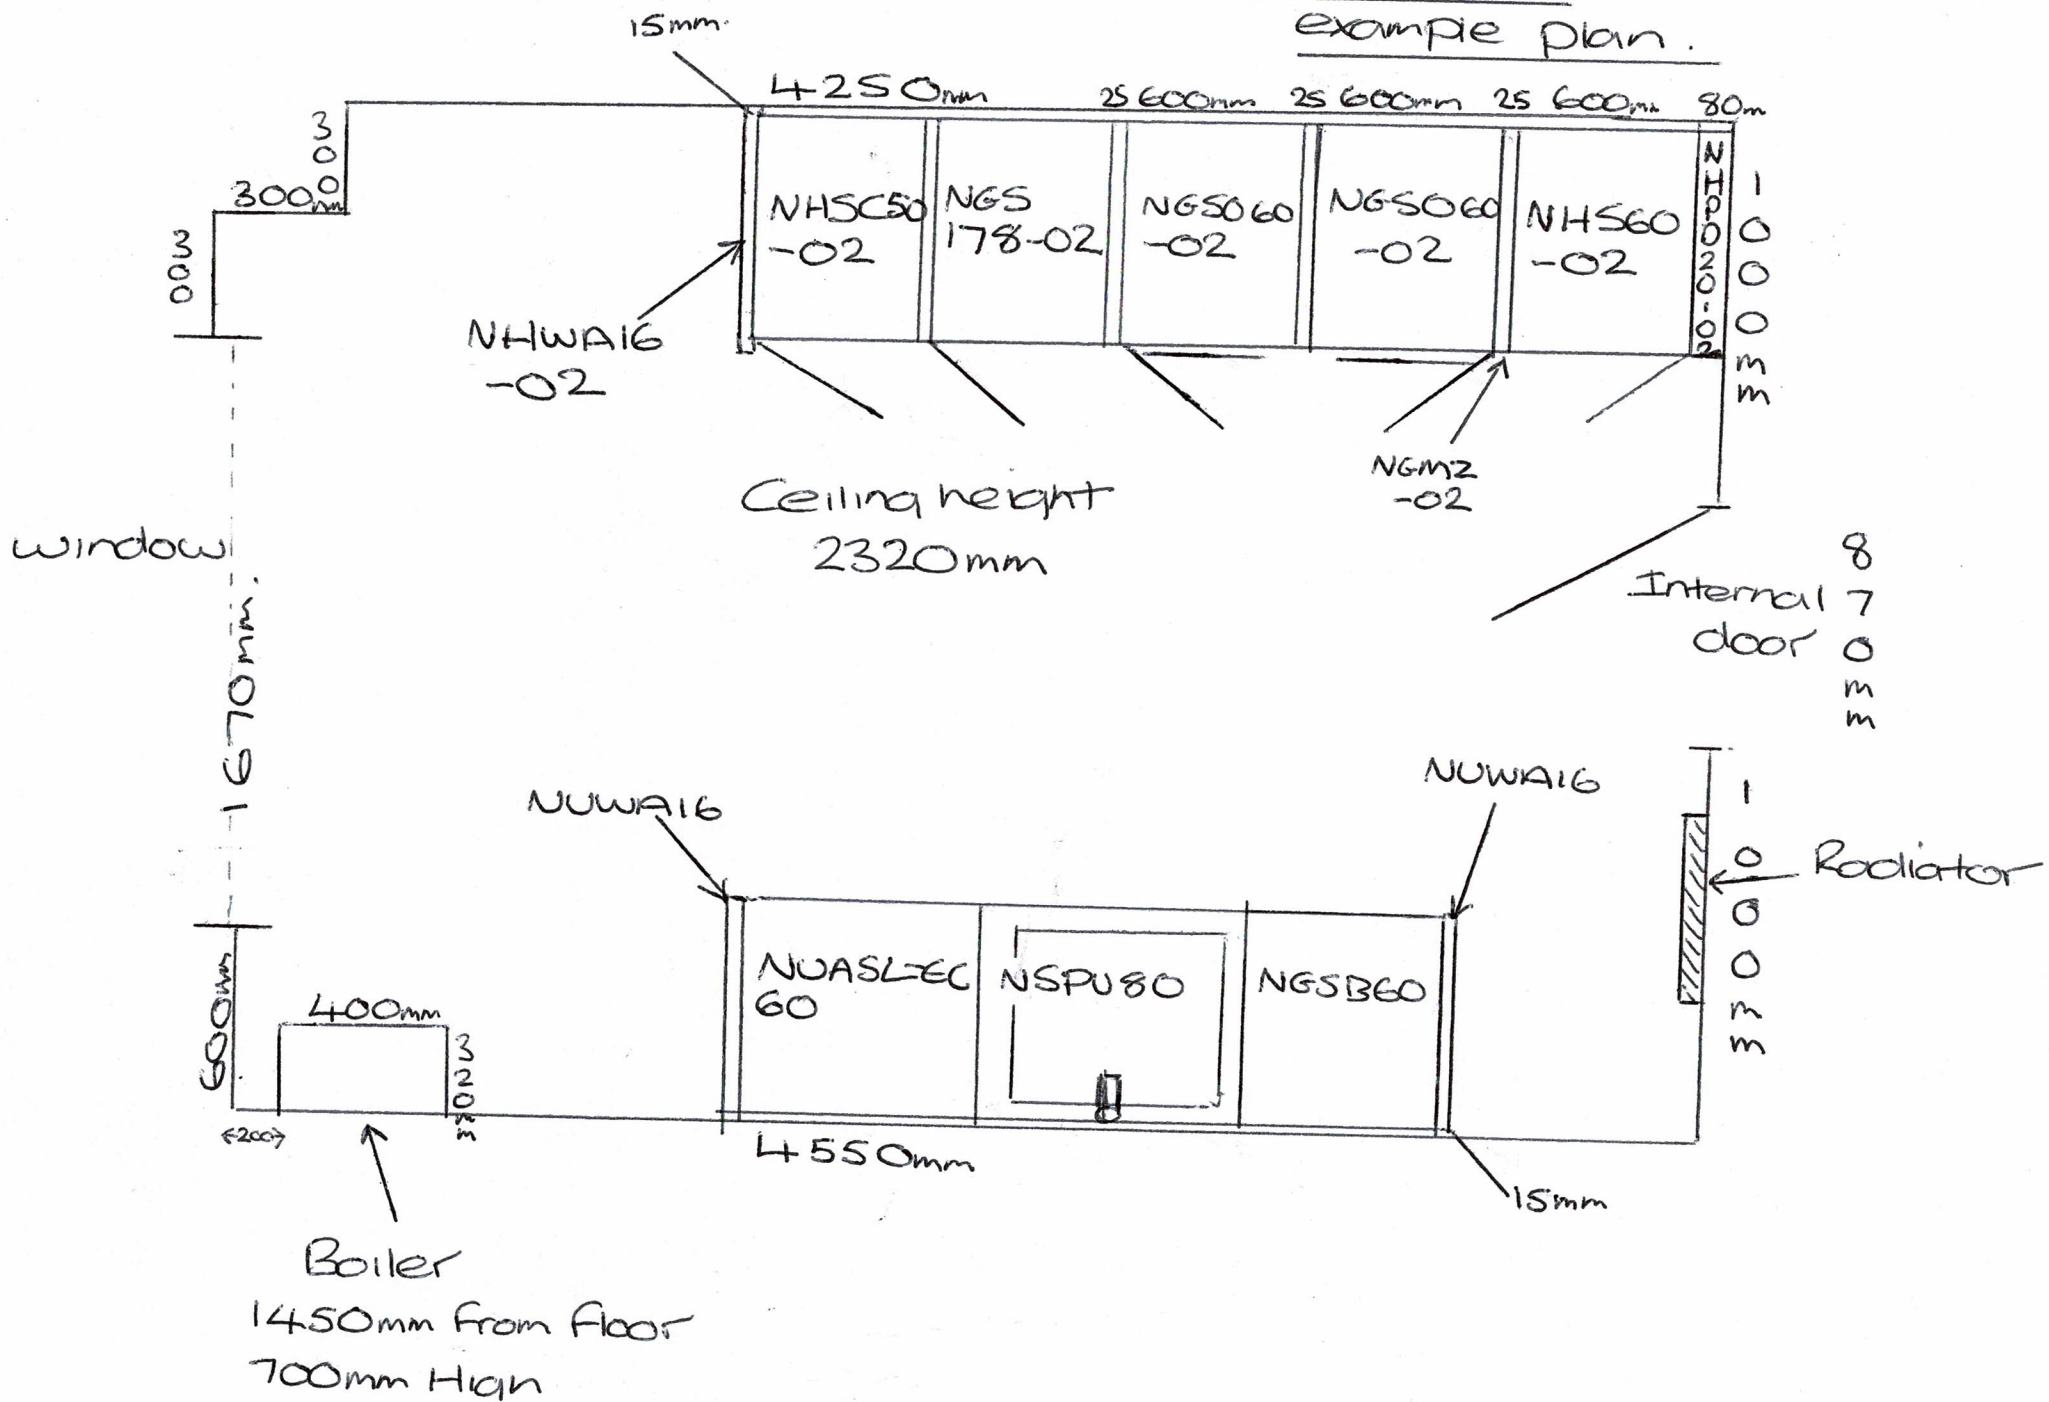 example plan.
15mm.
4250mm
25 600mm
25 600mm
25 600mm
80m
300
300mm
300
NHSC50
-02
NGS
178-02
NGSO60
-02
NGSO60
-02
NHS60
-02
NHPO20-02
1000mm
NHWA16
-02
NGMZ
-02
Ceiling height
2320mm
window
1670mm.
Internal
door
870mm
NUWA16
NUWA16
1000mm
Radiator
NUASL-EC
60
NSPU80
NGSB60
600mm
400mm
320mm
<200>
4550mm
15mm
Boiler
1450mm From Floor
700mm High